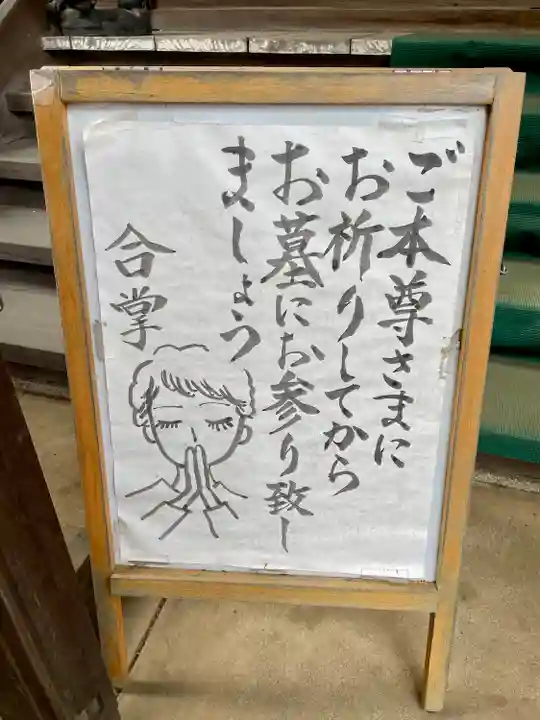 ご本尊さまに
お祈りしてから
お墓にお参り致し
ましょう
合掌